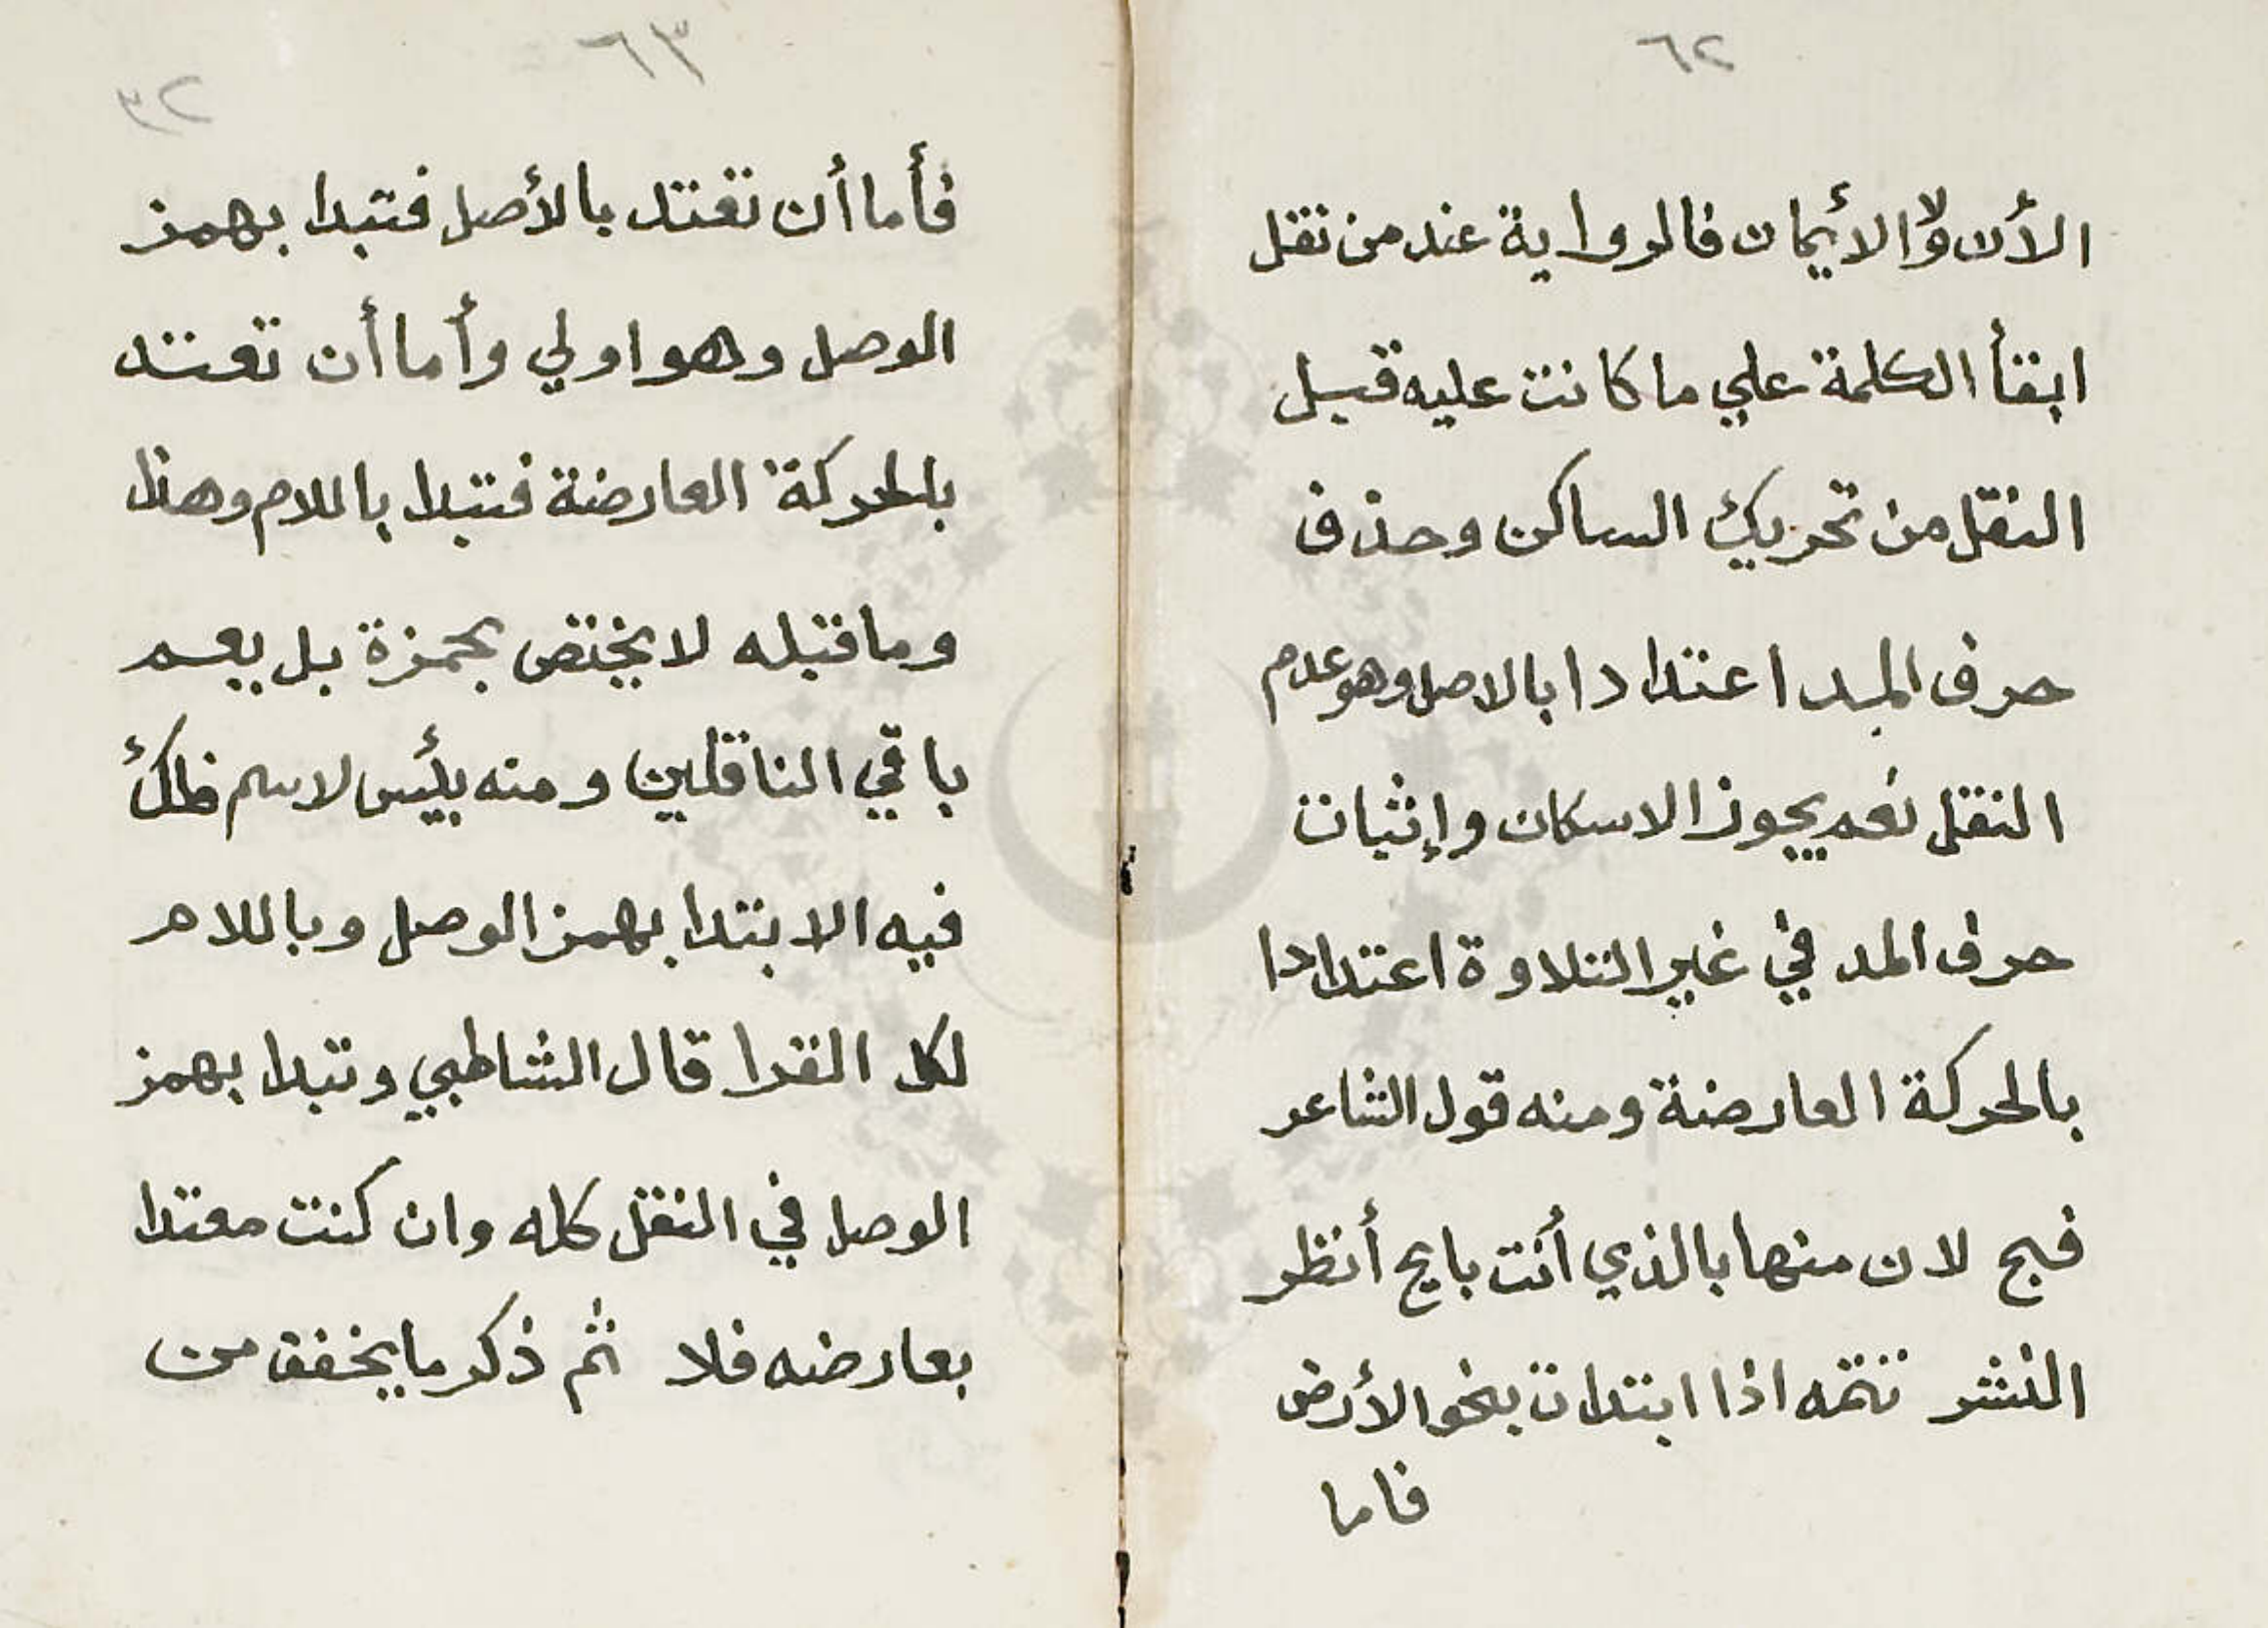 ٦٢
الأن ولا الأيمان فالرواية عند من نقل
ابقأ الكلمة علي ما كانت عليه قبل
النقل من تحريك الساكن وحذف
حرف المد اعتدادا بالاصل وهو عدم
النقل نعم يجوز الاسكان وإثبات
حرف المد في غير التلاوة اعتدادا
بالحركة العارضة ومنه قول الشاعر
فبح لان منها بالذي أنت بايح أنظر
النشر تتمه اذا ابتدات بنحو الأرض
فاما
٦٣
٣٢
فأما أن تعتد بالأصل فتبدا بهمز
الوصل وهو اولي وأما أن تعتد
بالحركة العارضة فتبدا باللام وهذا
وما قبله لا يختص بحمزة بل يعم
باقي الناقلين ومنه بئس لاسم فلك
فيه الابتدا بهمز الوصل وباللام
لكل القرا قال الشاطبي وتبدا بهمز
الوصل في النقل كله وان كنت معتدا
بعارضه فلا ثم ذكر ما يخفف من